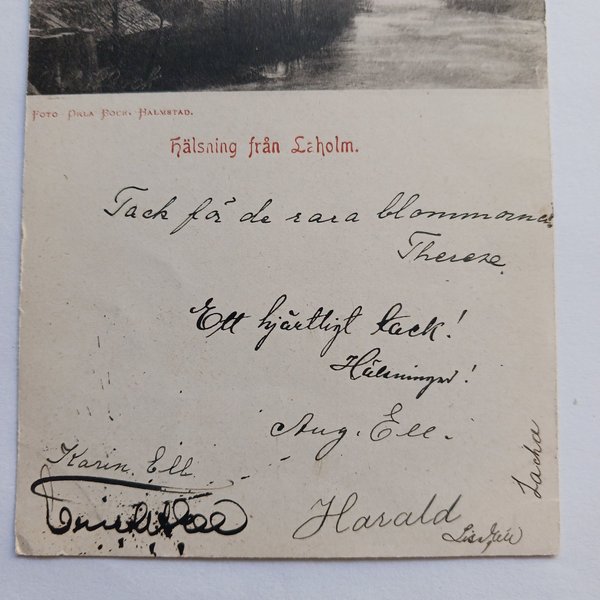 Foto Orla Bock, Halmstad.
Hälsning från Laholm.
Tack för de rara blommorna.
Therese.
Ett hjärtligt tack!
Hälsningar!
Aug. Ell.
Karin Ell
Harald